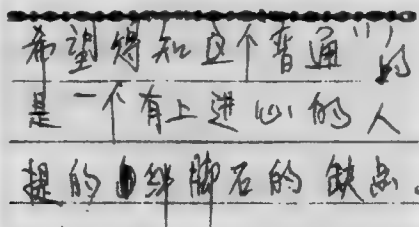 希望得知这个普通的
是一个有上进心的人
提的绊脚石的缺点。